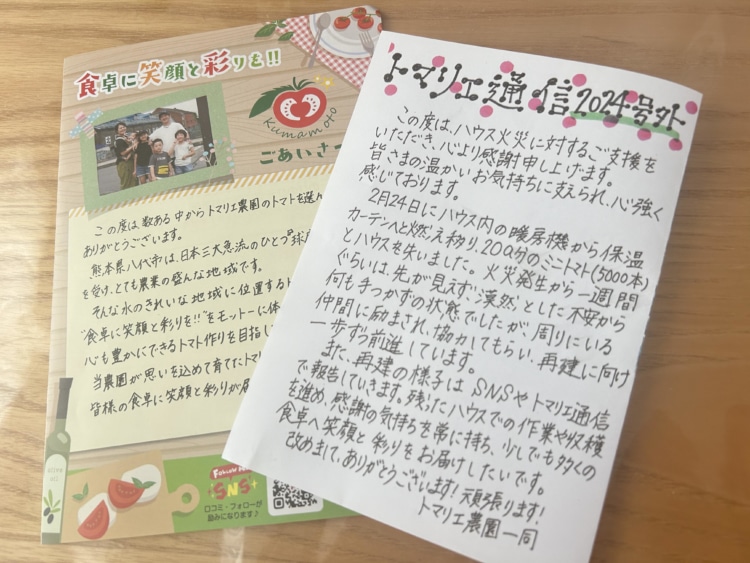 食卓に笑顔と彩りを!!
Kumamoto
ごあいさ
この度は、数ある中からトマリエ農園のトマトを選ん
ありがとうございます。
熊本県八代市は、日本三大急流のひとつ『球磨
を受け、とても農業の盛んな地域です。
そんな水のきれいな地域に位置するト
"食卓に笑顔と彩りを!!"をモットーに体
心も豊かにできるトマト作りを目指し
当農園が思いを込めて育てたトマ
皆様の食卓に笑顔と彩りが届
olive oil
Follow Me
SNS
口コミ・フォローが
励みになります♪
トマリエ通信2024号外
この度は、ハウス火災に対するご支援を
いただき、心より感謝申し上げます。
皆さまの温かいお気持ちに支えられ、心強く
感じております。
2月24日にハウス内の暖房機から保温
カーテンへと燃え移り、20a分のミニトマト(5000本)
とハウスを失いました。火災発生から一週間
ぐらいは、先が見えず、漠然とした不安から
何も手つかずの状態でしたが、周りにいる
仲間に励まされ、協力してもらい、再建に向け
一歩ずつ前進しています。
また、再建の様子はSNSやトマリエ通信
で報告していきます。残ったハウスでの作業や収穫
を進め、感謝の気持ちを常に持ち、少しでも多くの
食卓へ笑顔と彩りをお届けしたいです。
改めまして、ありがとうございます!頑張ります!
トマリエ農園一同